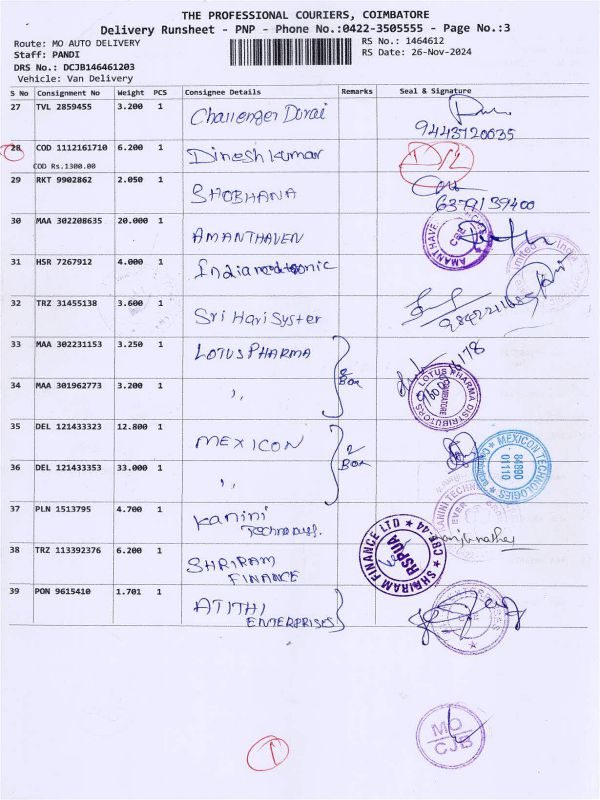 THE PROFESSIONAL COURIERS, COIMBATORE
Delivery Runsheet - PNP - Phone No.:0422-3505555 - Page No.:3
Route: MO AUTO DELIVERY
RS No.: 1464612
Staff: PANDI
RS Date: 26-Nov-2024
DRS No.: DCJB146461203
Vehicle: Van Delivery
S No Consignment No Weight PCS Consignee Details Remarks Seal & Signature
27 TVL 2859455 3.200 1 Challenger Dorai
9443720035
28 COD 1112161710 6.200 1 Dinesh kumar
COD Rs.1300.00
29 RKT 9902862 2.050 1 SHOBHANA
6379139400
30 MAA 302208635 20.000 1 AMANTHAVEN
31 HSR 7267912 4.000 1 India
32 TRZ 31455138 3.600 1 Sri Hari Syster
33 MAA 302231153 3.250 1 LOTUS PHARMA
2 Box
34 MAA 301962773 3.200 1 ,,
LOTUS PHARMA DISTRIBUTORS COIMBATORE
35 DEL 121433323 12.800 1 MEXICON
2 Box
36 DEL 121433353 33.000 1 ,,
MEXICON TECHNOLOGIES 84890 01110
37 PLN 1513795 4.700 1 Kanini
KANINI TECHN
38 TRZ 113392376 6.200 1 SHRIRAM
FINANCE
SHRIRAM FINANCE LTD CBE-44 RSPUA
39 PON 9615410 1.701 1 ATITHI
ENTERPRISES
MO
CJB
1